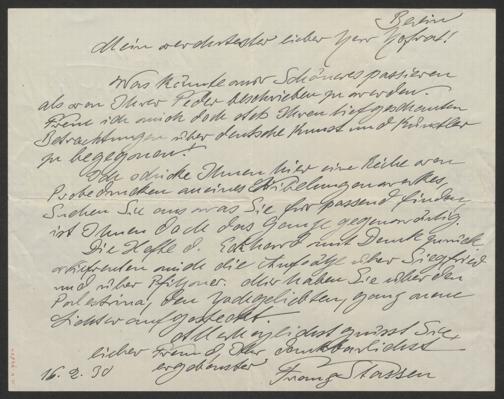 Berlin
Mein verehrtester lieber Herr Hofrat!
Was könnte mir Schöneres passieren
als von Ihrer Feder beschrieben zu werden.
Freue ich mich doch stets Ihren tiefgeschauten
Betrachtungen über deutsche Kunst und Künstler
zu begegnen!
Ich schicke Ihnen hier eine Reihe von
Probedrucken meines Nibelungenwerkes,
Suchen Sie aus was Sie für passend finden
ist Ihnen doch das Ganze gegenwärtig.
Die Hefte d. Eckhard mit Dank zurück.
mich die Aufsätze über Siegfried
und über Pfitzner. Mir haben Sie über den
Palestrina, den vielgeliebten, ganz neue
Lichter aufgesteckt.
Allerherzlichst grüsst Sie,
lieber Freund, Ihr dankbarlichst
ergebenster
16.2.30 Franz Stassen